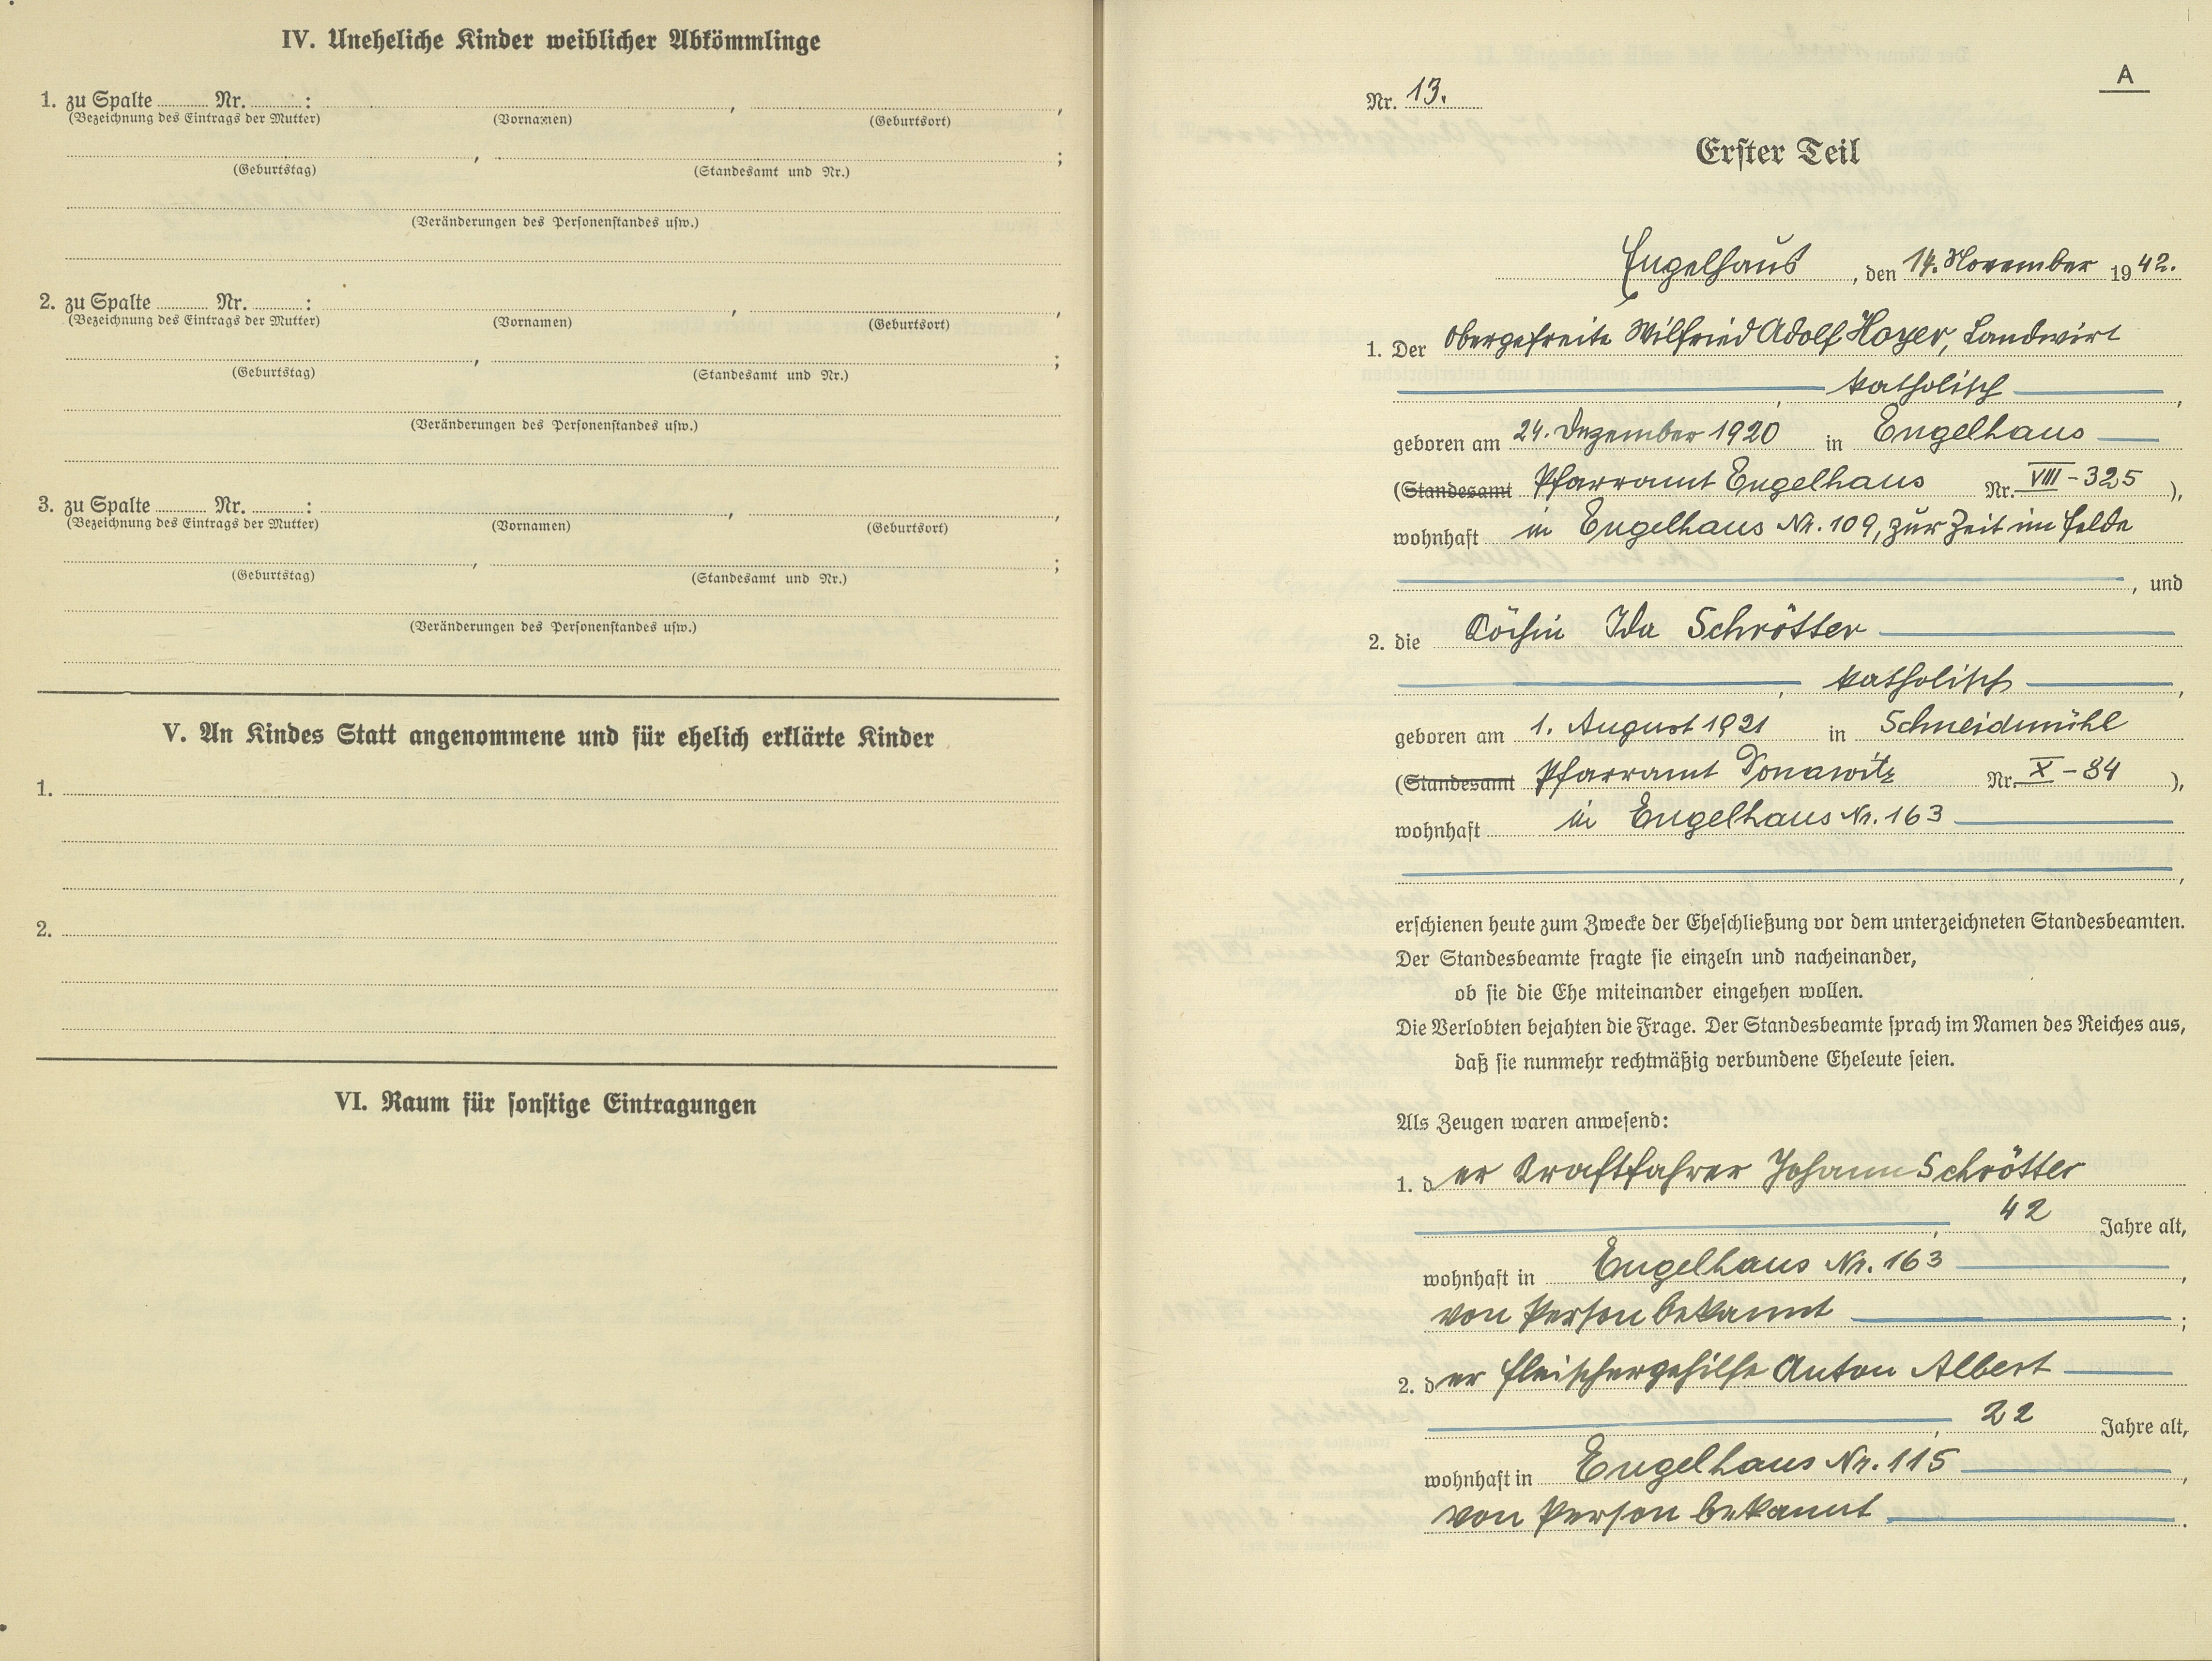 IV. Uneheliche Kinder weiblicher Abkömmlinge
1. zu Spalte ........ Nr. ........ : , ,
(Bezeichnung des Eintrags der Mutter) (Vornamen) (Geburtsort)
, ;
(Geburtstag) (Standesamt und Nr.)
(Veränderungen des Personenstandes usw.)
2. zu Spalte ........ Nr. ........ : , ,
(Bezeichnung des Eintrags der Mutter) (Vornamen) (Geburtsort)
, ;
(Geburtstag) (Standesamt und Nr.)
(Veränderungen des Personenstandes usw.)
3. zu Spalte ........ Nr. ........ : , ,
(Bezeichnung des Eintrags der Mutter) (Vornamen) (Geburtsort)
, ;
(Geburtstag) (Standesamt und Nr.)
(Veränderungen des Personenstandes usw.)
V. An Kindes Statt angenommene und für ehelich erklärte Kinder
1.
2.
VI. Raum für sonstige Eintragungen
A
Nr. 13.
Erster Teil
Engelhaus, den 14. November 1942.
1. Der Obergefreite Wilfried Adolf Hoyer, Landwirt
, katholisch ,
geboren am 24. Dezember 1920 in Engelhaus
(Standesamt Pfarramt Engelhaus Nr. VIII-325 ),
wohnhaft in Engelhaus Nr. 109, zur Zeit im Felde
, und
2. die Köchin Ida Schrötter
, katholisch ,
geboren am 1. August 1921 in Schneidmühl
(Standesamt Pfarramt Donawitz Nr. X-84 ),
wohnhaft in Engelhaus Nr. 163
,
erschienen heute zum Zwecke der Eheschließung vor dem unterzeichneten Standesbeamten.
Der Standesbeamte fragte sie einzeln und nacheinander,
ob sie die Ehe miteinander eingehen wollen.
Die Verlobten bejahten die Frage. Der Standesbeamte sprach im Namen des Reiches aus,
daß sie nunmehr rechtmäßig verbundene Eheleute seien.
Als Zeugen waren anwesend:
1. der Kraftfahrer Johann Schrötter
, 42 Jahre alt,
wohnhaft in Engelhaus Nr. 163 ,
von Person bekannt ;
2. der Fleischergehilfe Anton Albert
, 22 Jahre alt,
wohnhaft in Engelhaus Nr. 115 ,
von Person bekannt .